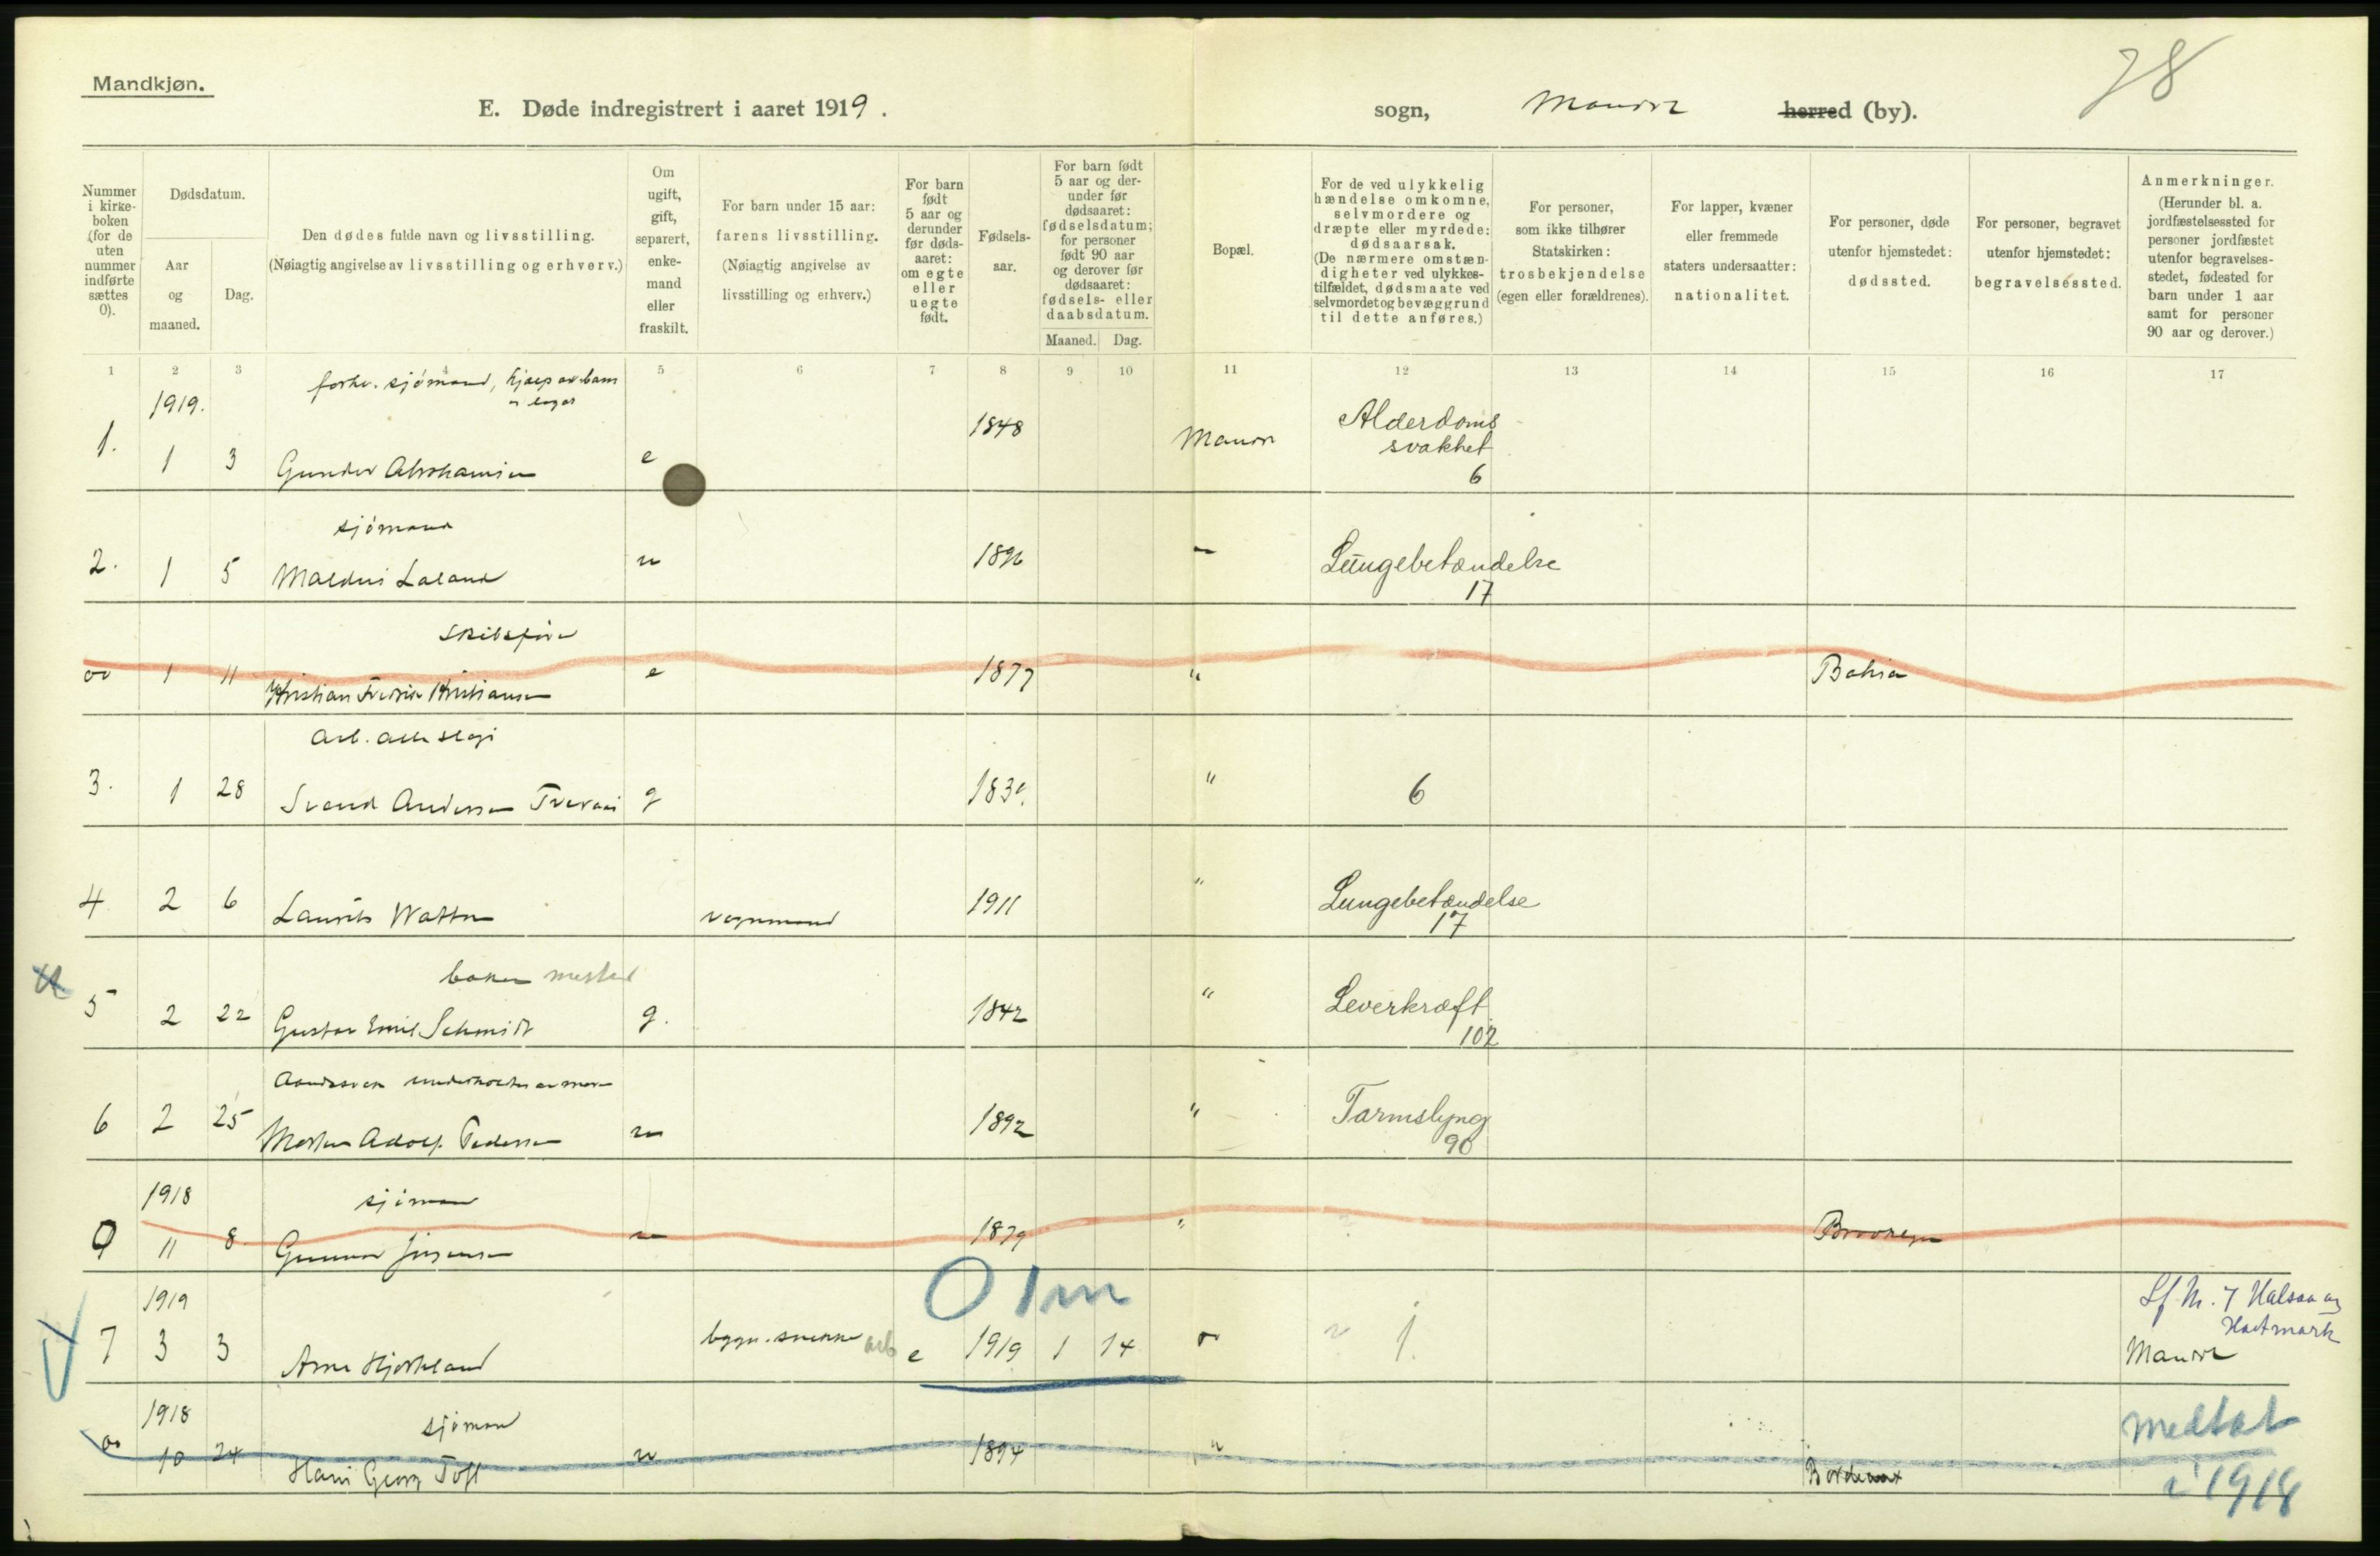 Mandkjøn.
E. Døde indregistrert i aaret 1919.
sogn, Mandal herred (by).
78
Nummer i kirkeboken (for de uten nummer indførte sættes 0).
Dødsdatum.
Aar og maaned.
Dag.
Den dødes fulde navn og livsstilling.
(Nøiagtig angivelse av livsstilling og erhverv.)
Om ugift, gift, separert, enkemand eller fraskilt.
For barn under 15 aar: farens livsstilling.
(Nøiagtig angivelse av livsstilling og erhverv.)
For barn født 5 aar og derunder før dødsaaret: om egte eller uegte født.
Fødselsaar.
For barn født 5 aar og derunder før dødsaaret: fødselsdatum; for personer født 90 aar og derover før dødsaaret: fødsels- eller daabsdatum.
Maaned. Dag.
Bopæl.
For de ved ulykkelig hændelse omkomne, selvmordere og dræpte eller myrdede: dødsaarsak.
(De nærmere omstændigheter ved ulykkestilfældet, dødsmaate ved selvmordet og bevæggrund til dette anføres.)
For personer, som ikke tilhører Statskirken: trosbekjendelse (egen eller forældrenes).
For lapper, kvæner eller fremmede staters undersaatter: nationalitet.
For personer, døde utenfor hjemstedet: dødssted.
For personer, begravet utenfor hjemstedet: begravelsessted.
Anmerkninger.
(Herunder bl. a. jordfæstelsessted for personer jordfæstet utenfor begravelsesstedet, fødested for barn under 1 aar samt for personer 90 aar og derover.)
1 2 3 4 5 6 7 8 9 10 11 12 13 14 15 16 17
1919.
forhv. sjømand,
1. 1 3 Gunder Abrahamsen e 1848 Mandal Alderdoms svakhet 6
sjømand
2. 1 5 Laland u 1896 " Lungebetændelse 17
Skibsfører
00 1 11 Kristian Fredrik Kristiansen e 1877 " Bahia
3. 1 28 Svend Andersen g 1839 " 6
4 2 6 Laurits Watne vognmand 1911 " Lungebetændelse 17
baker mester
5 2 22 Gustav Emil Schmidt g. 1842 " Leverkræft 102
Aandssvak underholdes av mor
6 2 25 Morten Adolf Pedersen u 1892 " Tarmslyng 90
1918
sjømand
0 11 8 Gunnar Jensen u 1879 " Brooklyn
0 1 m
1919
7 3 3 Arne Hjorteland bygn. snekker arb e 1919 1 14 " 1. Mandal
Lf. M. 7 Halsaa og Hartmark
1918
sjømand
00 10 24 Hans Georg Toft u 1894 " Bordeaux
medtat i 1918